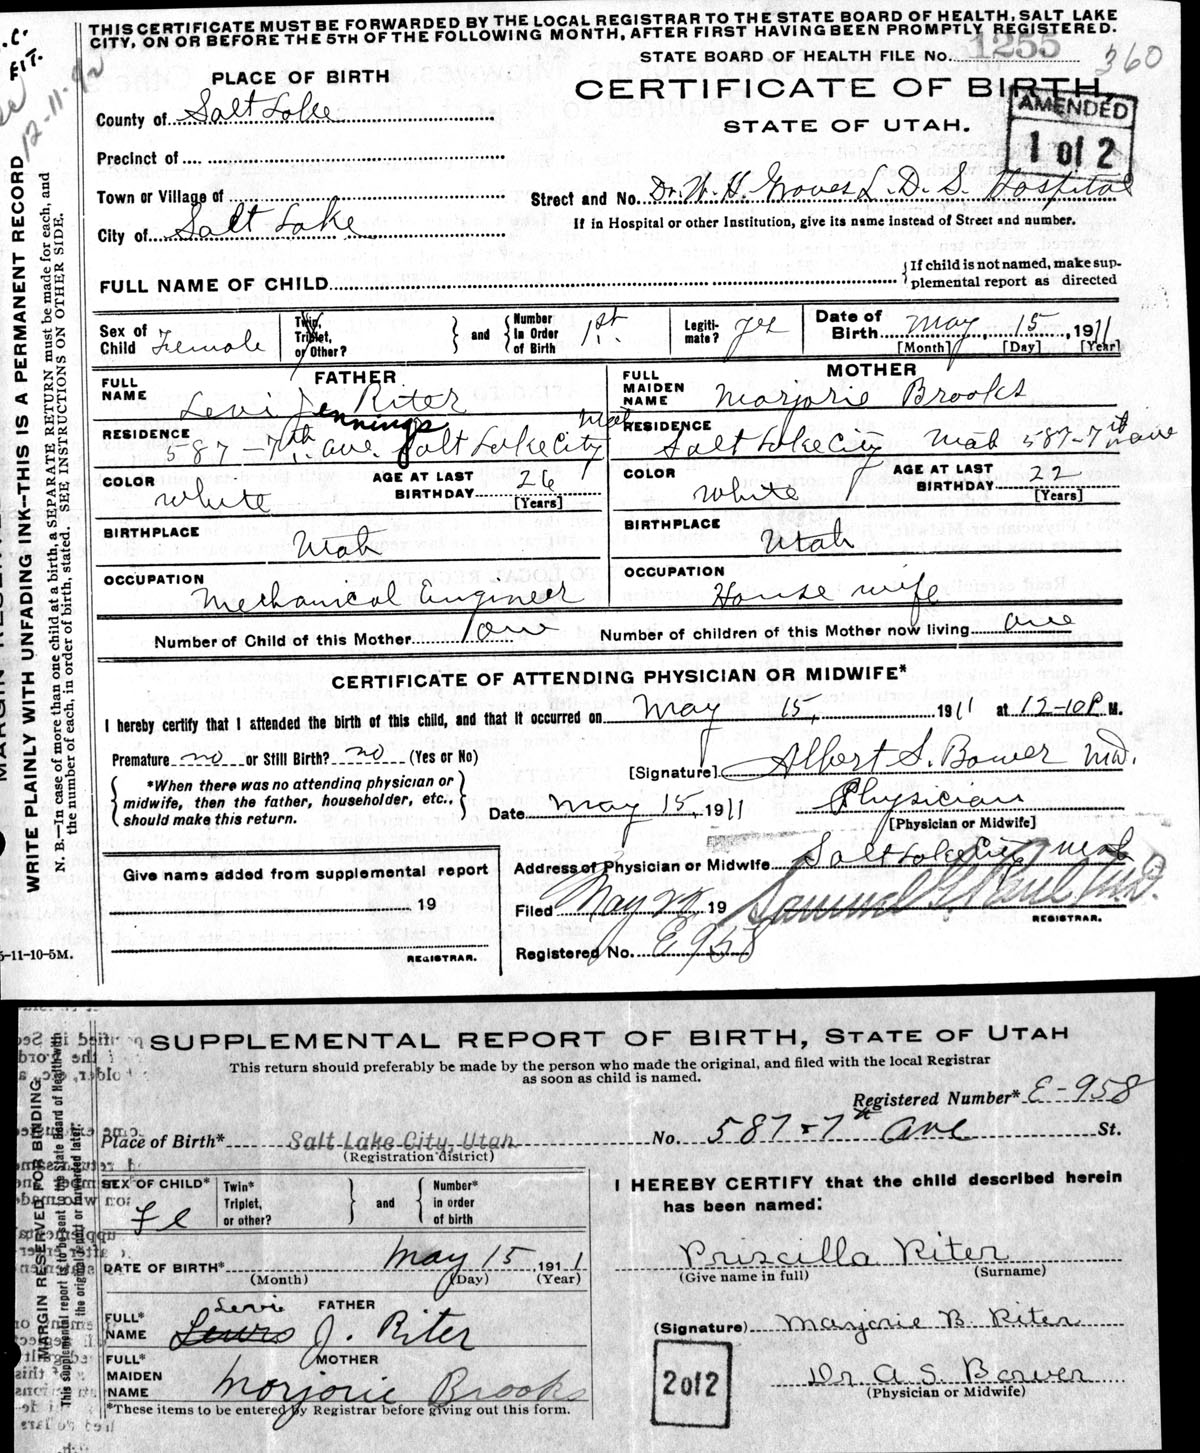 THIS CERTIFICATE MUST BE FORWARDED BY THE LOCAL REGISTRAR TO THE STATE BOARD OF HEALTH, SALT LAKE
CITY, ON OR BEFORE THE 5TH OF THE FOLLOWING MONTH, AFTER FIRST HAVING BEEN PROMPTLY REGISTERED.
STATE BOARD OF HEALTH FILE No. 1255
360
12-11-
PLACE OF BIRTH
CERTIFICATE OF BIRTH,
STATE OF UTAH.
AMENDED
1 of 2
County of Salt Lake
Precinct of
Town or Village of
City of Salt Lake
Street and No. Dr. W. H. Groves L. D. S. Hospital
If in Hospital or other Institution, give its name instead of Street and number.
FULL NAME OF CHILD
If child is not named, make sup-
plemental report as directed
Sex of Child Female
Twin, Triplet, or Other?
and
Number In Order of Birth 1st.
Legiti-mate? yes
Date of Birth May 15, 1911
[Month] [Day] [Year]
FATHER
FULL NAME Levi Jennings Riter
RESIDENCE 587-7th ave. Salt Lake City Utah
COLOR White
AGE AT LAST BIRTHDAY 26 [Years]
BIRTHPLACE Utah
OCCUPATION Mechanical Engineer
MOTHER
FULL MAIDEN NAME Marjorie Brooks
RESIDENCE Salt Lake City Utah 587-7th ave
COLOR White
AGE AT LAST BIRTHDAY 22 [Years]
BIRTHPLACE Utah
OCCUPATION House wife
Number of Child of this Mother one
Number of children of this Mother now living one
CERTIFICATE OF ATTENDING PHYSICIAN OR MIDWIFE*
I hereby certify that I attended the birth of this child, and that it occurred on May 15, 1911 at 12-10 P M.
Premature no or Still Birth? no (Yes or No)
*When there was no attending physician or
midwife, then the father, householder, etc.,
should make this return.
[Signature] Albert S. Bower M.D.
Date May 15, 1911
Physician
[Physician or Midwife]
Address of Physician or Midwife Salt Lake City Utah
Give name added from supplemental report
19
REGISTRAR.
Filed May 19
Samuel G. Paul M.D.
REGISTRAR.
Registered No. E 958
WRITE PLAINLY WITH UNFADING INK—THIS IS A PERMANENT RECORD
N. B.—In case of more than one child at a birth, a SEPARATE RETURN must be made for each, and
the number of each, in order of birth, stated. SEE INSTRUCTIONS ON OTHER SIDE.
5-11-10-5M.
SUPPLEMENTAL REPORT OF BIRTH, STATE OF UTAH
This return should preferably be made by the person who made the original, and filed with the local Registrar
as soon as child is named.
Registered Number* E-958
Place of Birth* Salt Lake City, Utah No. 587-7th Ave St.
(Registration district)
SEX OF CHILD* Fe
Twin* Triplet, or other?
and
Number* in order of birth
DATE OF BIRTH* May 15 1911
(Month) (Day) (Year)
FATHER
FULL* NAME Lewis Levi J. Riter
MOTHER
FULL* MAIDEN NAME Marjorie Brooks
*These items to be entered by Registrar before giving out this form.
I HEREBY CERTIFY that the child described herein
has been named:
Priscilla Riter
(Give name in full) (Surname)
(Signature) Marjorie B. Riter
Dr. A. S. Bower
(Physician or Midwife)
2 of 2
MARGIN RESERVED FOR BINDING
This supplemental report is to be sent to the State Board of Health with
the original report or forwarded later.